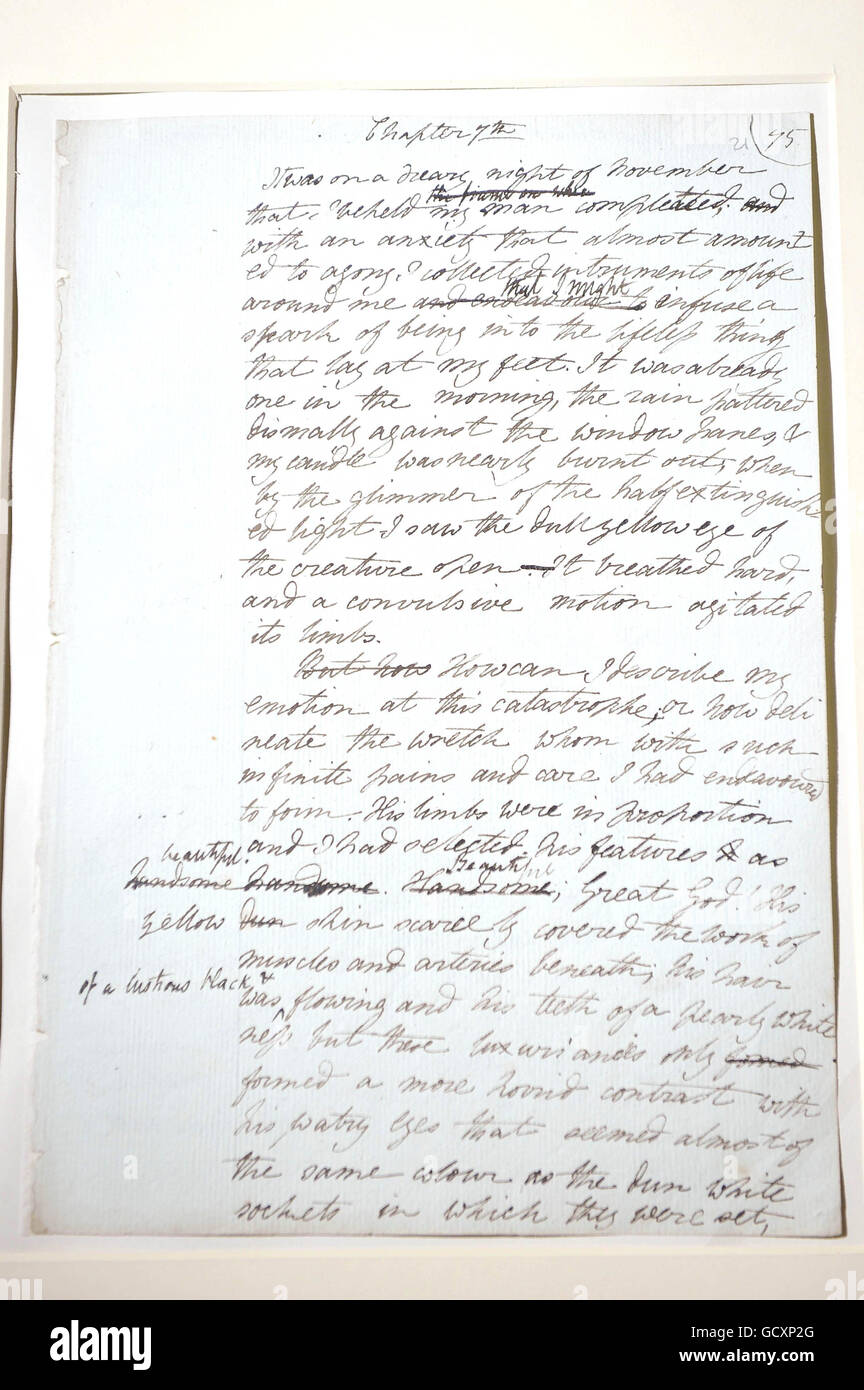 Chapter 7th
21 75
It was on a dreary night of November
that I beheld my man compleated; and
with an anxiety that almost amount
ed to agony, I collected instruments of life
that I might
around me and endeavour to infuse a
spark of being into the lifeless thing
that lay at my feet. It was already
one in the morning, the rain pattered
dismally against the window panes, &
my candle was nearly burnt out, when
by the glimmer of the half extinguish-
ed light I saw the dull yellow eye of
the creature open. It breathed hard,
and a convulsive motion agitated
its limbs.
But how How can I describe my
emotion at this catastrophe; or how deli
neate the wretch whom with such
infinite pains and care I had endavoured
to form. His limbs were in proportion
and I had selected his features & as
beautiful. Beautiful
handsome handsome. Handsome; Great God! His
yellow dun skin scarcely covered the work of
muscles and arteries beneath; his hair
of a lustrous black, &
was flowing and his teeth of a pearly white
ness but these luxuriances only formed
formed a more horrid contrast with
his watry eyes that seemed almost of
the same colour as the dun white
sockets in which they were set,
alamy
a
a
alamy
Image ID: GCXP2G
www.alamy.com